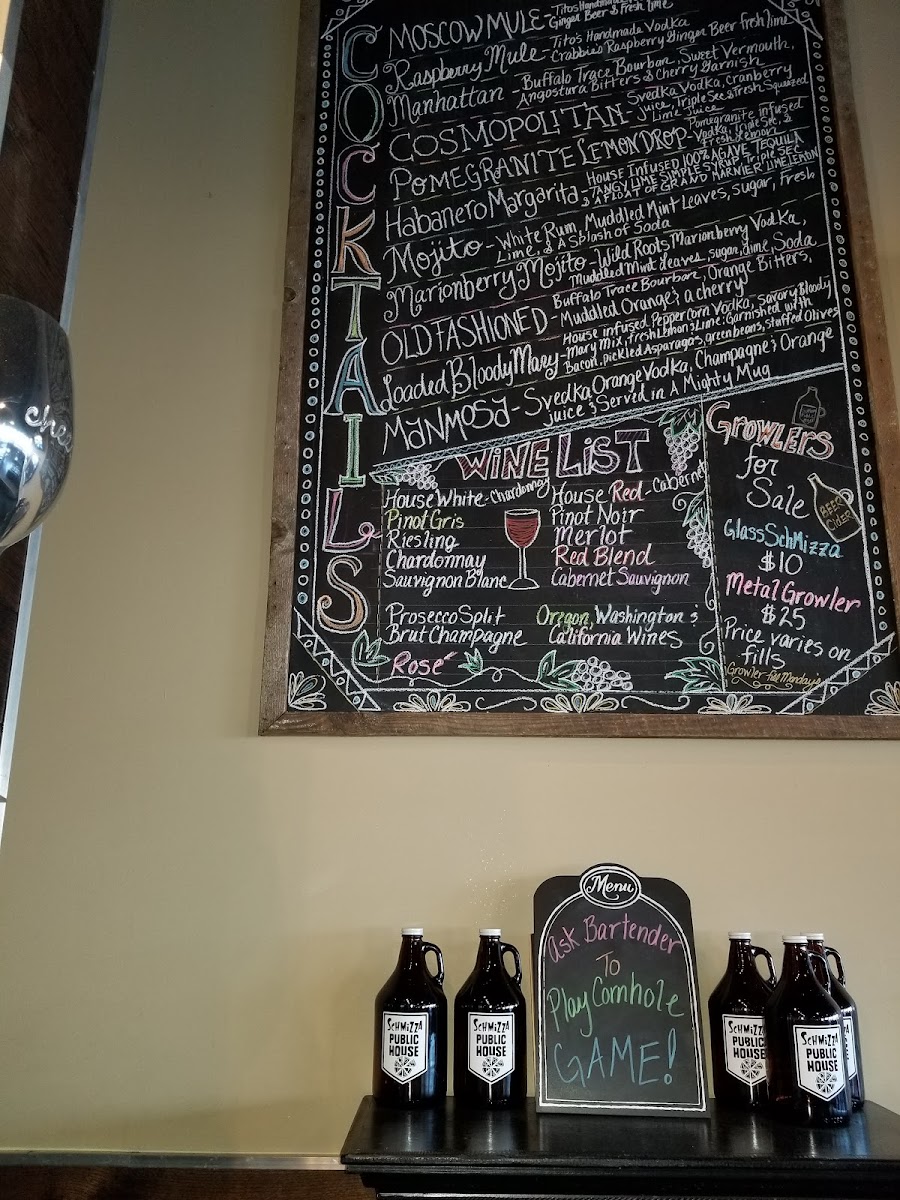 COCKTAILS
MOSCOW MULE - Titos Handmade
Ginger Beer & Fresh lime
Raspberry Mule - Tito's Handmade Vodka
Crabbie's Raspberry Ginger Beer fresh lime
Manhattan - Buffalo Trace Bourbon, Sweet Vermouth,
Angostura Bitters & Cherry Garnish
COSMOPOLITAN - Svedka Vodka, cranberry
Juice, Triple Sec & Fresh Squeezed
Lime Juice
POMEGRANITE LEMON DROP - Pomegranite infused
Vodka, Triple Sec, &
Fresh Lemon
Habanero Margarita - House Infused 100% AGAVE TEQUILA
TANGY LIME SIMPLE SYRUP, Triple SEC
& A FLOAT OF GRAND MARNIER LIME LEMON
Mojito - White Rum, Muddled Mint Leaves, sugar, fresh
Lime, & A Splash of Soda
Marionberry Mojito - Wild Roots Marionberry Vodka,
Muddled Mint leaves, sugar, lime, Soda
OLD FASHIONED - Buffalo Trace Bourbon, Orange Bitters,
Muddled Orange & a cherry
Loaded Bloody Mary - House infused Peppercorn Vodka, savory Bloody
Mary Mix, fresh Lemon & Lime: Garnished with
Bacon, pickled Asparagas, green beans, stuffed Olives
MANMOSA - Svedka Orange Vodka, Champagne & Orange
juice & Served in A Mighty Mug
WINE LIST
House White - Chardonnay
Pinot Gris
Riesling
Chardonnay
Sauvignon Blanc
Prosecco Split
Brut Champagne
Rosé
House Red - Cabernet
Pinot Noir
Merlot
Red Blend
Cabernet Sauvignon
Oregon, Washington &
California Wines
GROWLERS
for
Sale
BEER
CIDER
Glass SchMizza
$10
Metal Growler
$25
Price varies on
fills
Growler fill Monday's
Menu
Ask Bartender
To
Play Cornhole
GAME!
SCHMIZZA
PUBLIC
HOUSE
SCHMIZZA
PUBLIC
HOUSE
SCHMIZZA
PUBLIC
HOUSE
SCHMIZZA
PUBLIC
HOUSE